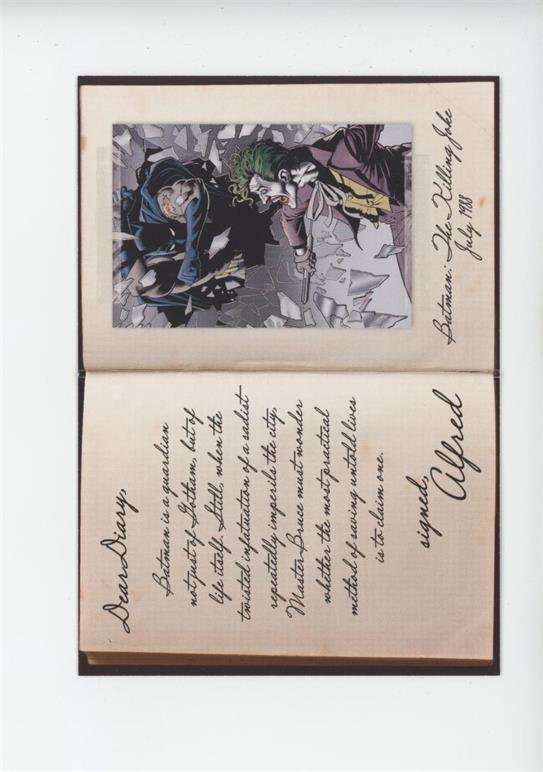 Dear Diary,
Batman is a guardian
not just of Gotham, but of
life itself. Still, when the
twisted infatuation of a sadist
repeatedly imperils the city,
Master Bruce must wonder
whether the most practical
method of saving untold lives
is to claim one.
signed,
Alfred
Batman: The Killing Joke
July 1988